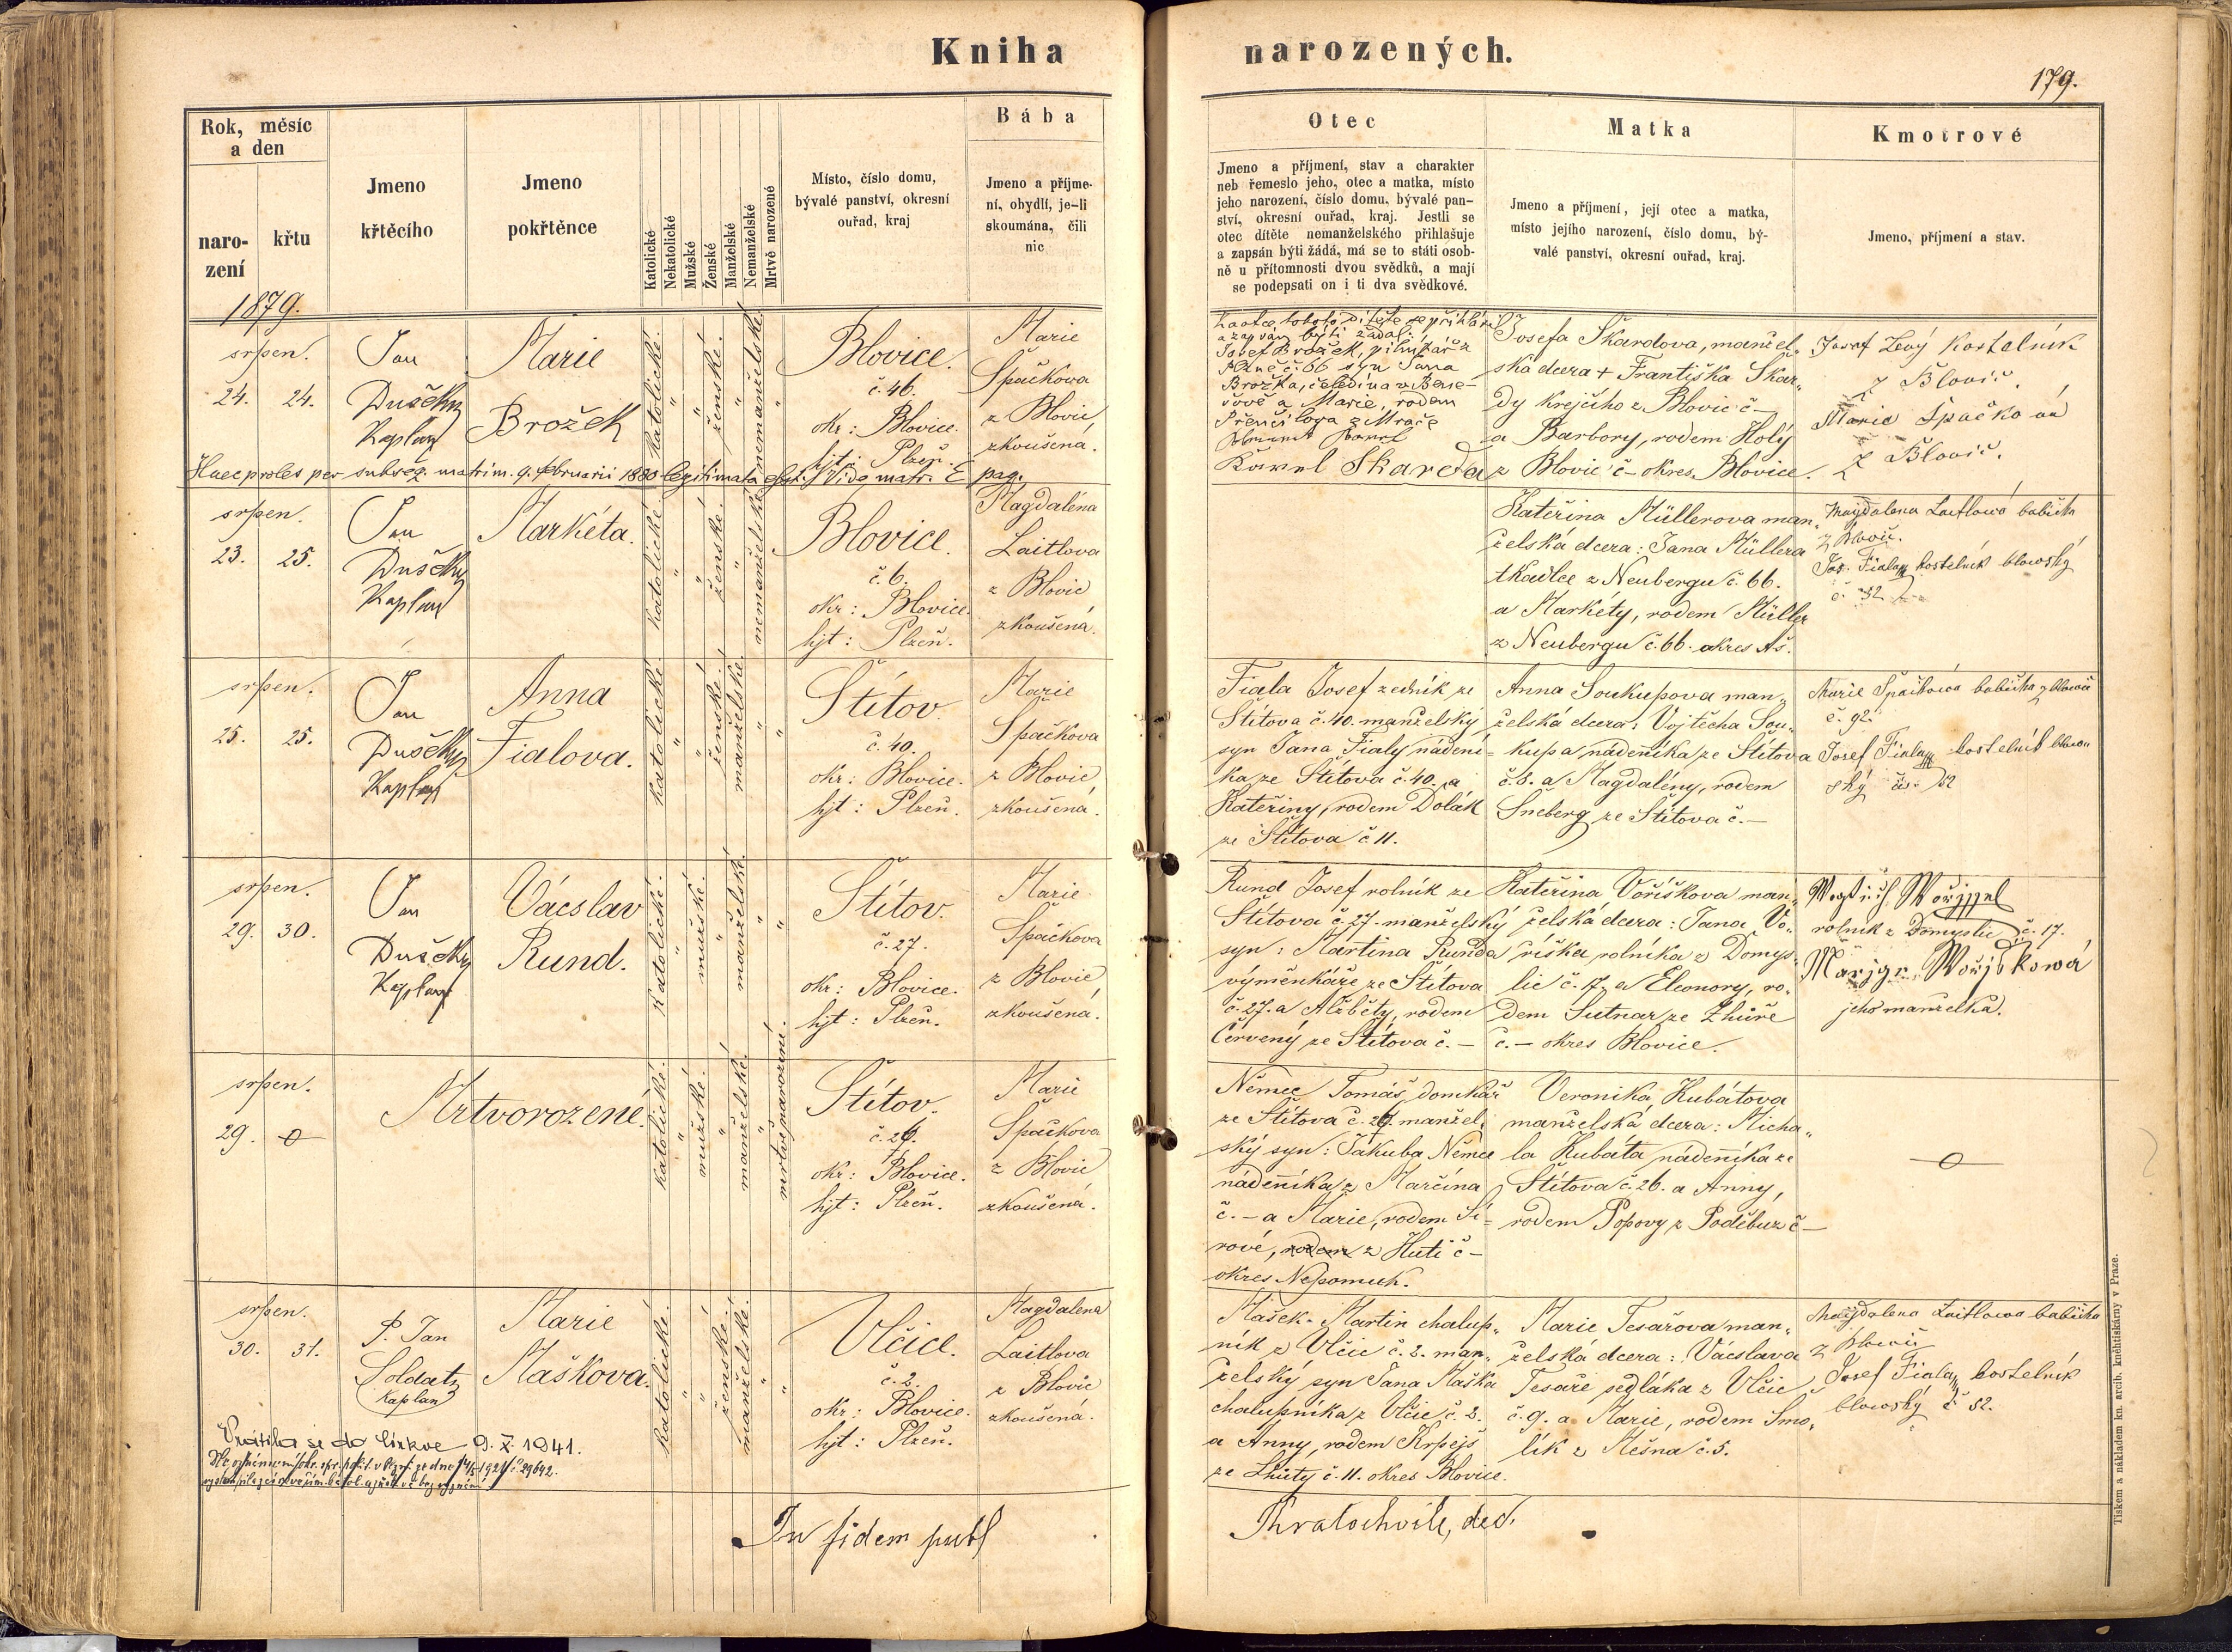 Kniha
narozených.
179.
Rok, měsíc
a den
naro-
zení
křtu
Jmeno
křtěcího
Jmeno
pokřtěnce
Katolické
Nekatolické
Mužské
Ženské
Manželské
Nemanželské
Mrtvě narozené
Místo, číslo domu,
bývalé panství, okresní
ouřad, kraj
Bába
Jmeno a příjme-
ní, obydlí, je-li
skoumána, čili
nic
Otec
Jmeno a příjmení, stav a charakter
neb řemeslo jeho, otec a matka, místo
jeho narození, číslo domu, bývalé pan-
ství, okresní ouřad, kraj. Jestli se
otec dítěte nemanželského přihlašuje
a zapsán býti žádá, má se to státi osob-
ně u přítomnosti dvou svědků, a mají
se podepsati on i ti dva svědkové.
Matka
Jmeno a příjmení, její otec a matka,
místo jejího narození, číslo domu, bý-
valé panství, okresní ouřad, kraj.
Kmotrové
Jmeno, příjmení a stav.
1879.
srpen.
24. 24.
Jan
Dušek
Kaplan
Marie
Brožek
katolické.
"
"
ženské.
"
nemanželské.
"
Blovice.
č. 46.
okr: Blovice.
hjt: Plzeň.
Marie
Špačkova
z Blovic
zkoušená.
Za otce tohoto dítěte se přihlásil
a zapsán býti žádal:
Josef Brožek, pilnikář z
Plzně č. 66 syn Jana
Brožka, čeledína v
a Marie, rodem
Karel Skarda
Josefa Škardova, manžel„
ská dcera + Františka Skar„
dy krejčího z Blovic č –
a Barbory, rodem Holý
z Blovic č – okres Blovice.
Josef Lený kostelník
z Blovic.
Marie Špačková
z Blovic.
Haec proles per subseq. matrim. 9. februarii 1880 legitimata est. Vide matr. E pag.
srpen.
23. 25.
Jan
Dušek
Kaplan
Markéta.
katolické.
"
"
ženské.
"
nemanželské.
Blovice.
č. 6.
okr: Blovice.
hjt: Plzeň.
Magdaléna
Laitlova
z Blovic
zkoušená.
Kateřina Müllerova man„
želská dcera: Jana Müllera
tkadlce z Neubergu č. 66.
a Markéty, rodem Müller
z Neubergu č. 66. okres Aš.
Magdalena Laitlowá babička
z Blovic.
Jos. Fiala kostelník blowský
č. 32
srpen.
25. 25.
Jan
Dušek
Kaplan
Anna
Fialova.
katolické.
"
"
ženské.
manželské.
"
"
Štítov.
č. 40.
okr: Blovice.
hjt: Plzeň.
Marie
Špačkova
z Blovic
zkoušená.
Fiala Josef zedník ze
Štítova č. 40. manželský
syn Jana Fialy nádení=
ka ze Štítova č. 40. a
Kateřiny, rodem Dolák
ze Štítova č 11.
Anna Soukupova man„
želská dcera: Vojtěcha Sou„
kupa nádeníka ze Štítova
č. 8. a Magdalény, rodem
Šneberg ze Štítova č. –
Marie Špačkowa babička z Blowic
č. 92.
Josef Fiala kostelník blow
ský čís. 52
srpen.
29. 30.
Jan
Dušek
Kaplan
Vácslav
Rund.
katolické.
"
mužské.
"
manželské.
"
"
Štítov.
č. 27.
okr: Blovice.
hjt: Plzeň.
Marie
Špačkova
z Blovic
zkoušená.
Rund Josef rolník ze
Štítova č. 27. manželský
syn: Martina Runda
výměnkáře ze Štítova
č. 27. a Alžběty, rodem
Červený ze Štítova č. –
Kateřina Voříškova man„
želská dcera: Jana Vo„
říška rolníka z Domys„
lic č. 7. a Eleonory, ro„
dem Sutnar ze Zhůře
č. – okres Blovice.
rolník z Domyslic č. 17.
jeho manželka.
srpen.
29. 0
Mrtvorozené.
katolické.
"
mužské.
"
manželské.
"
mrtvě narození.
Štítov.
okr: Blovice.
hjt: Plzeň.
Marie
Špačkova
z Blovic
zkoušená.
Němec Tomáš, domkář
ze Štítova č. 29. manžel„
ský syn: Jakuba Němce
nádeníka z Marčína
č. – a Marie, rodem Ší=
rové, rodem z Huti č –
okres Nepomuk.
Veronika Kubátova
manželská dcera: Micha„
la Kubáta nádeníka ze
Štítova č. 26. a Anny,
rodem Popovy z Poděbuz č –
0
srpen.
30. 31.
P. Jan
Soldat
Kaplan
Marie
Maškova.
katolické.
"
"
ženské.
manželské.
"
"
Vlčice.
č. 2.
okr: Blovice.
hjt: Plzeň.
Magdalena
Laitlova
z Blovic
zkoušená.
Mašek Martin chalup„
ník z Vlčic č. 2. man„
želský syn Jana Maška
chalupníka z Vlčic č. 2.
a Anny, rodem Krpejš
ze Lhůty č. 11. okres Blovice.
Marie Tesařova man„
želská dcera: Vácslava
Tesaře sedláka z Vlčic
č. 9. a Marie, rodem Smo„
lík z Mešna č. 5.
Magdalena Laitlowa babička
z Blowic
Josef Fiala kostelník
blowský č 52.
Vrátila se do církve 9. X. 1941.
In fidem publ
Kratochvíle, děk.
Tiskem a nákladem kn. arcib. kněhtiskárny v Praze.